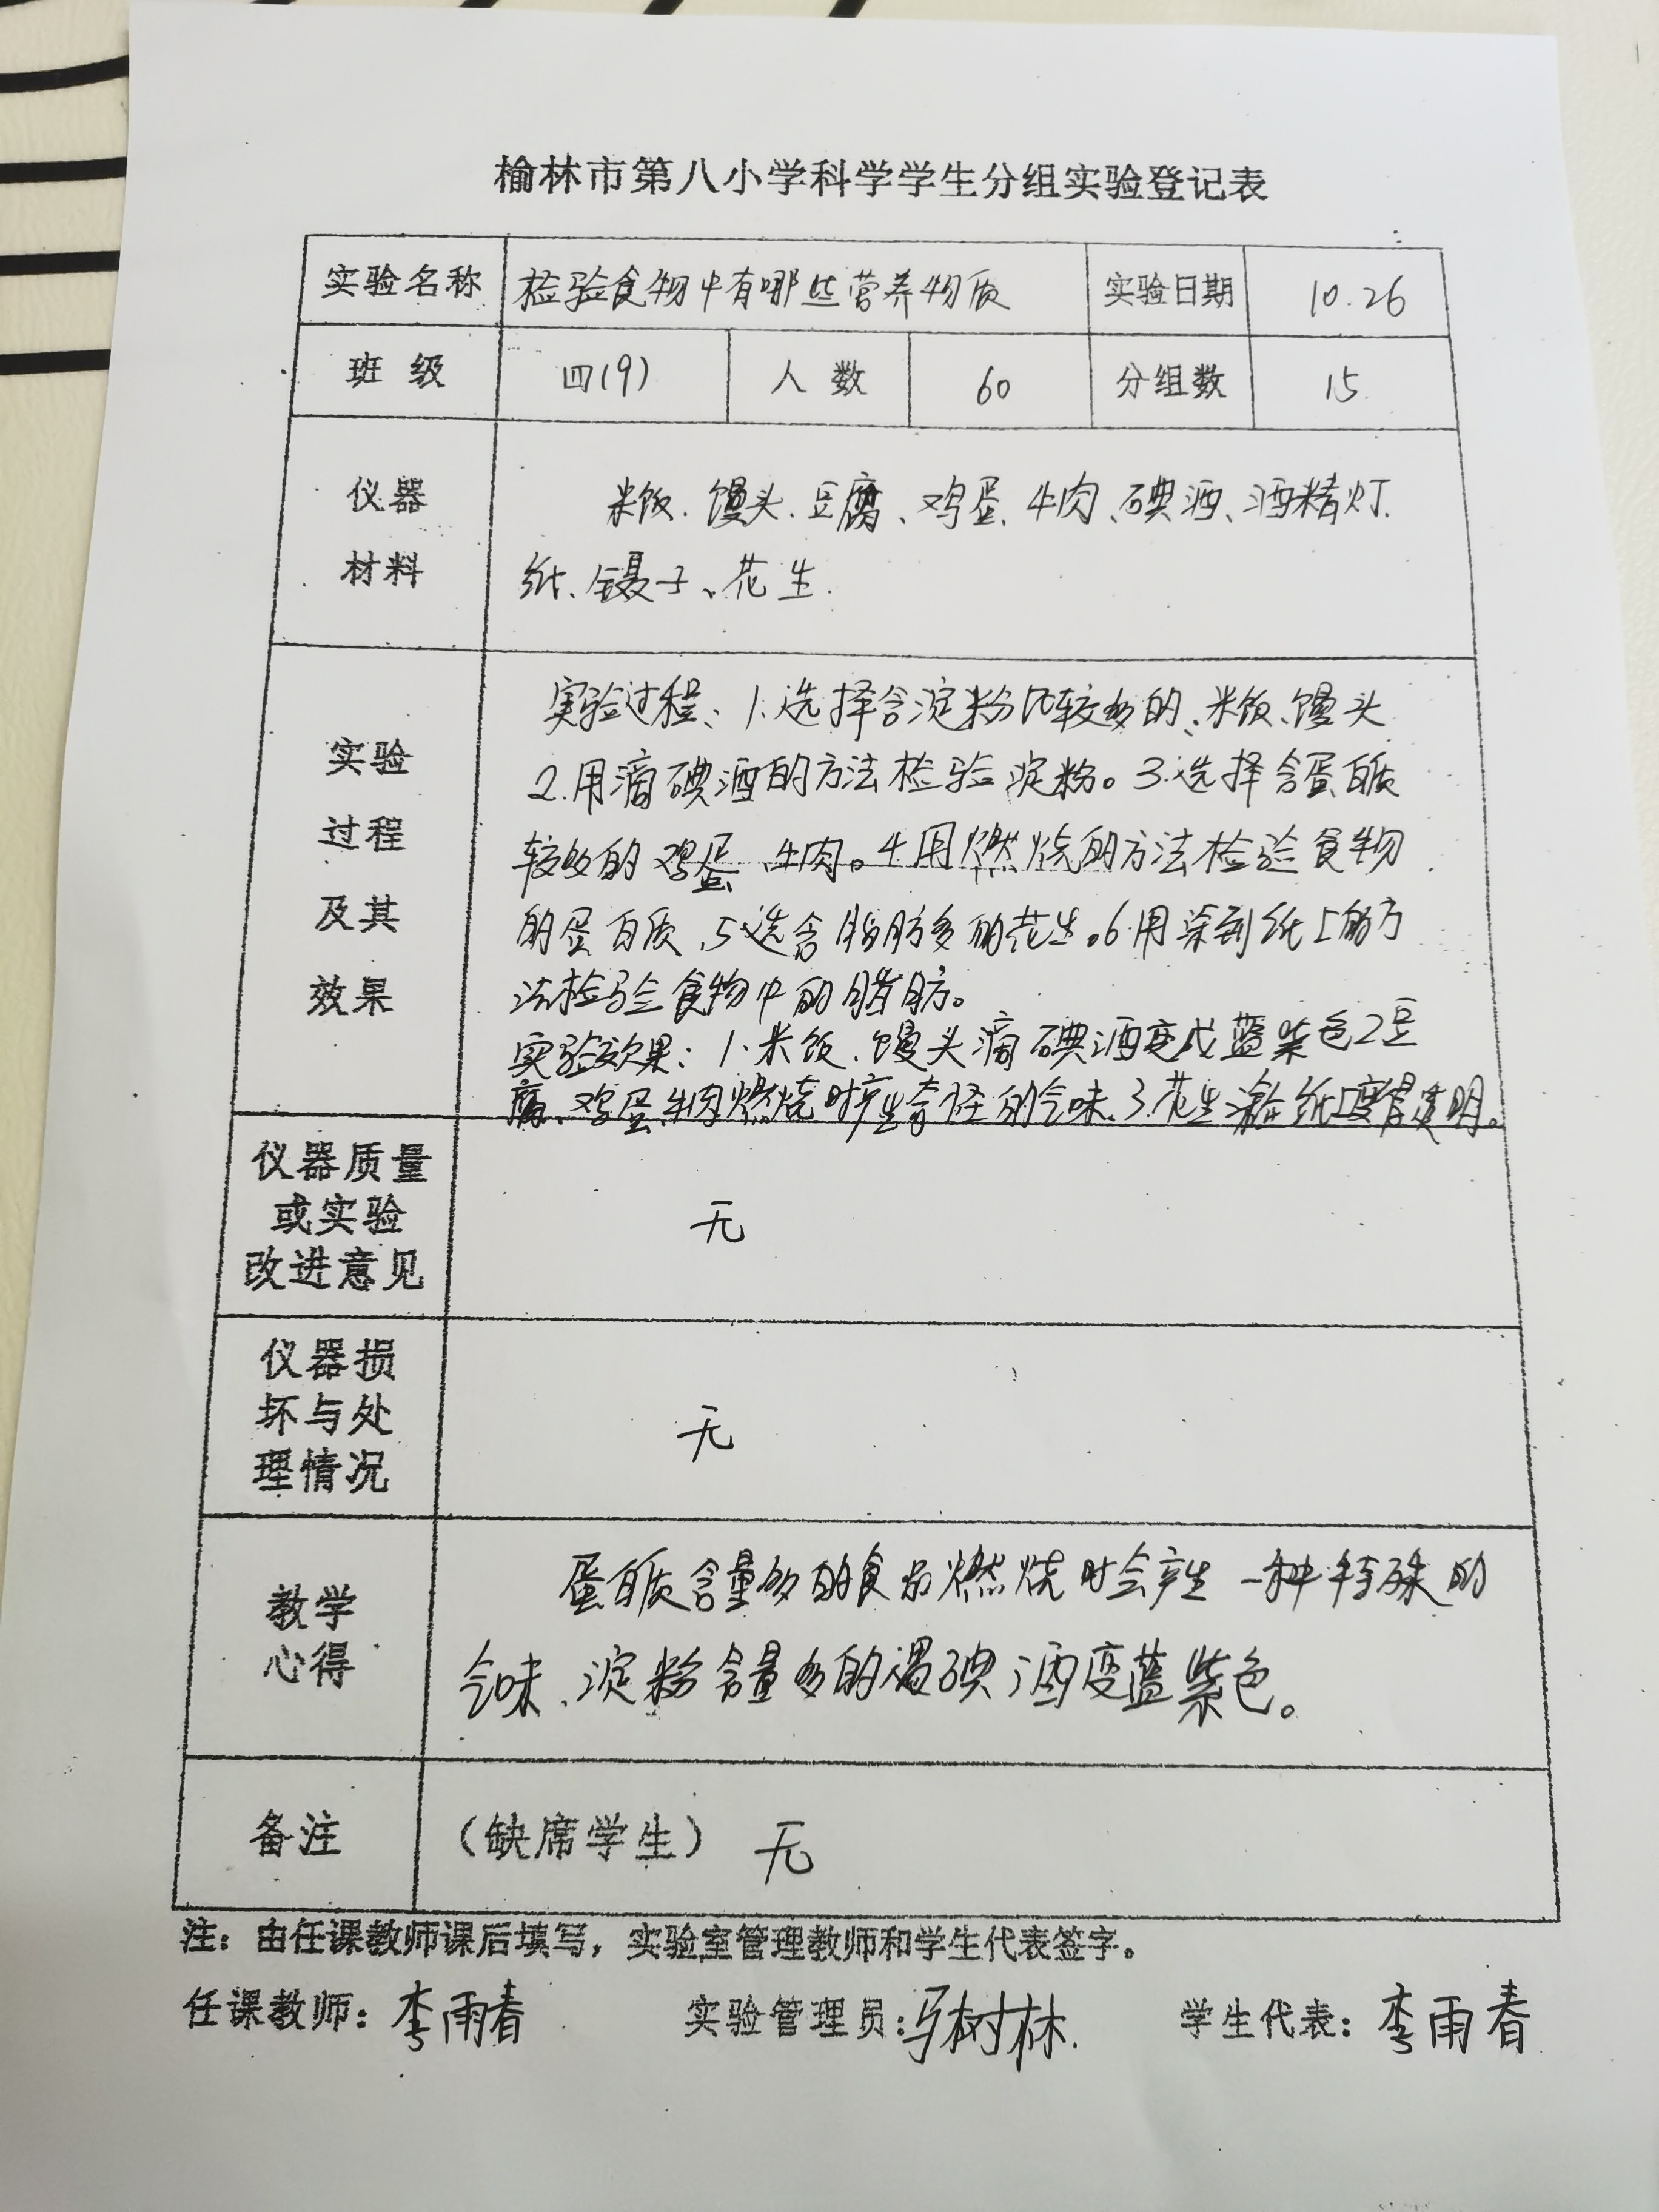 榆林市第八小学科学学生分组实验登记表
实验名称 检验食物中有哪些营养物质 实验日期 10.26
班 级 四(9) 人 数 60 分组数 15
仪器
材料
米饭、馒头、豆腐、鸡蛋、牛肉、碘酒、酒精灯、
纸、镊子、花生.
实验
过程
及其
效果
实验过程、1.选择含淀粉比较多的、米饭、馒头
2.用滴碘酒的方法检验淀粉。3.选择含蛋白质
较多的鸡蛋、牛肉。4用燃烧的方法检验食物
的蛋白质、5选含脂肪多的花生。6.用涂到纸上的方
法检验食物中的脂肪。
实验效果：1.米饭、馒头滴碘酒变成蓝紫色2豆
腐、鸡蛋、牛肉燃烧时产生奇怪的气味.3.花生 纸上变 透明。
仪器质量
或实验
改进意见
无
仪器损
坏与处
理情况
无
教学
心得
蛋白质含量多的食品燃烧时会产生一种特殊的
气味、淀粉含量多的遇碘酒变蓝紫色。
备注 （缺席学生） 无
注：由任课教师课后填写，实验室管理教师和学生代表签字。
任课教师：李雨春 实验管理员：马树林. 学生代表：李雨春